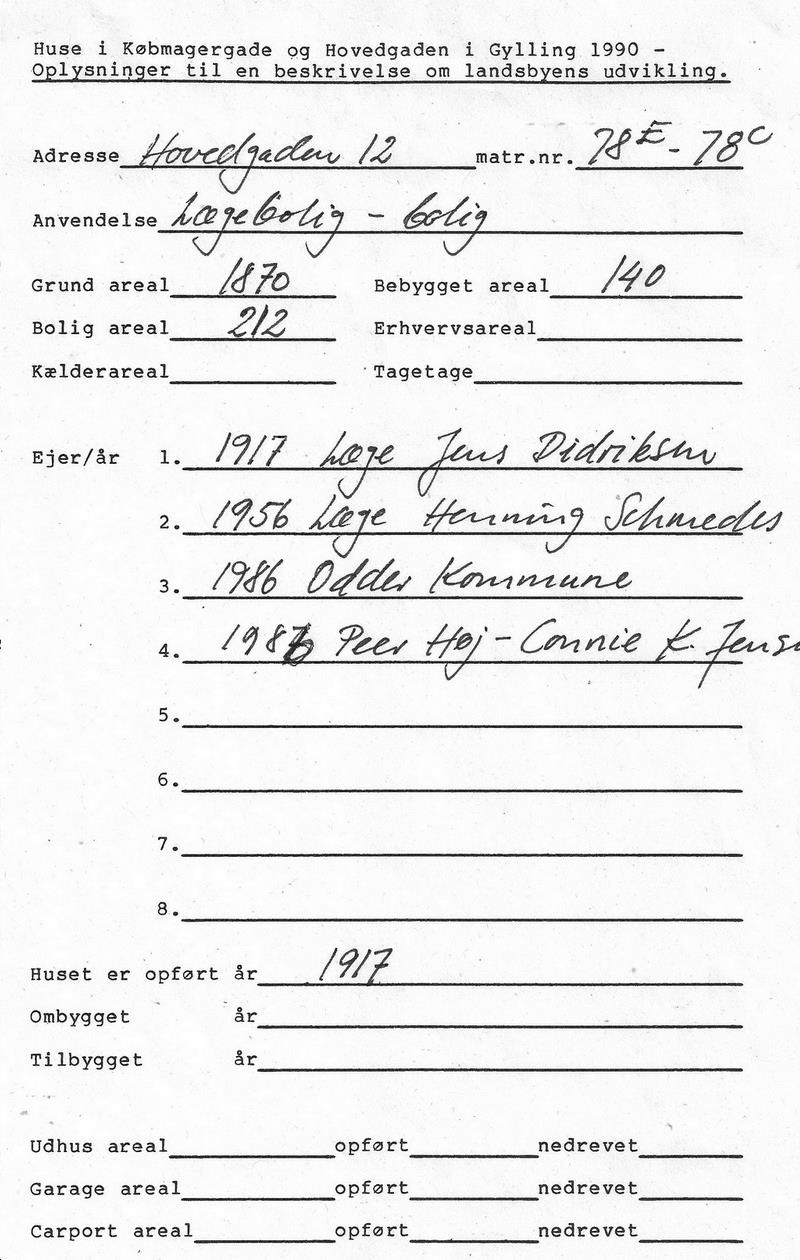 Huse i Købmagergade og Hovedgaden i Gylling 1990 -
Oplysninger til en beskrivelse om landsbyens udvikling.
Adresse Hovedgaden 12 matr.nr. 78E - 78C
Anvendelse Lægebolig - bolig
Grund areal 1870 Bebygget areal 140
Bolig areal 212 Erhvervsareal
Kælderareal Tagetage
Ejer/år 1. 1917 Læge Jens Didriksen
2. 1956 Læge Henning Schmedes
3. 1986 Odder Kommune
4. Peer Høj - Connie K.
5.
6.
7.
8.
Huset er opført år 1917
Ombygget år
Tilbygget år
Udhus areal opført nedrevet
Garage areal opført nedrevet
Carport areal opført nedrevet